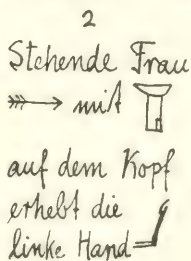 2
Stehende Frau
mit
auf dem Kopf
erhebt die
linke Hand